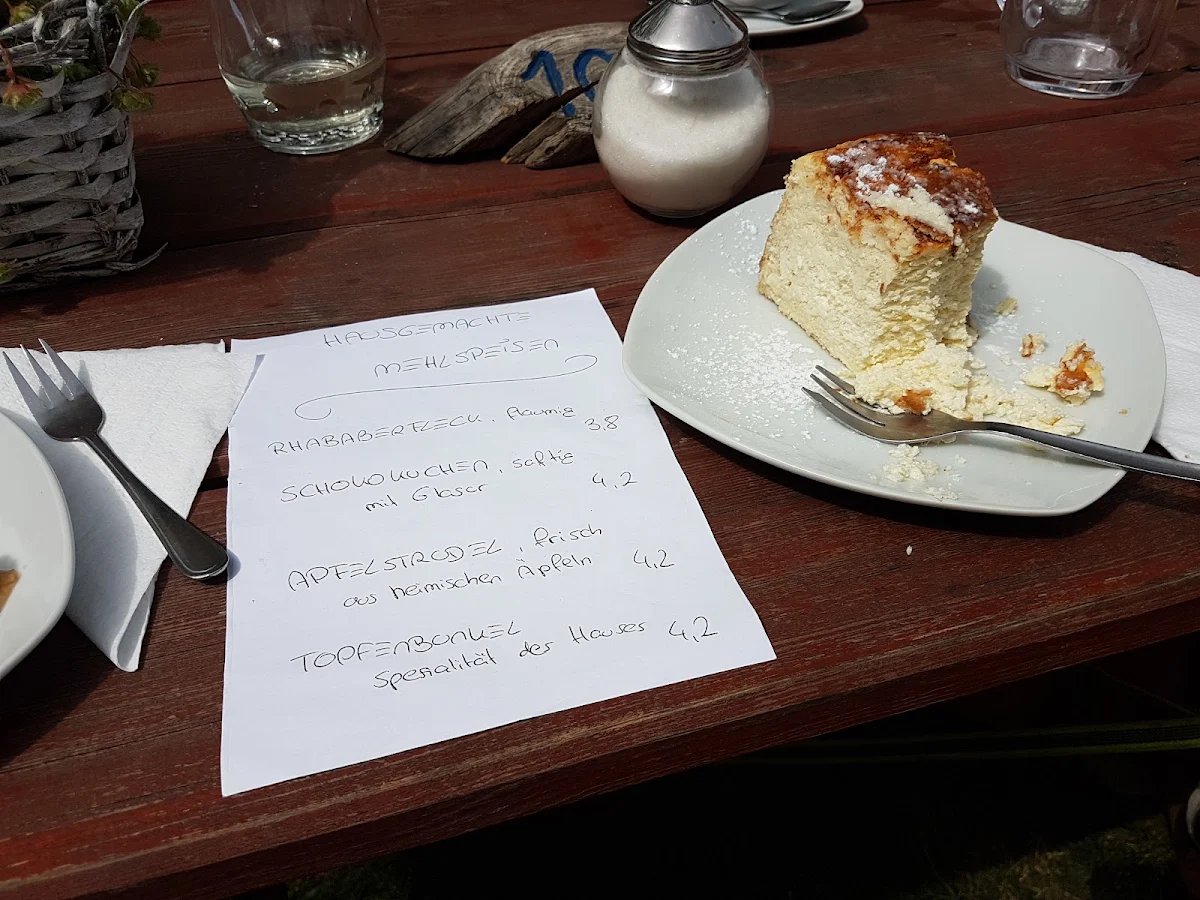 10
HAUSGEMACHTE
MEHLSPEISEN
RHABABERFLECK, flaumig
3,8
SCHOKOKUCHEN, saftig
mit Glasur
4,2
APFELSTRUDEL, frisch
aus heimischen Äpfeln 4,2
TOPFENBUNKEL
Spezialität des Hauses 4,2